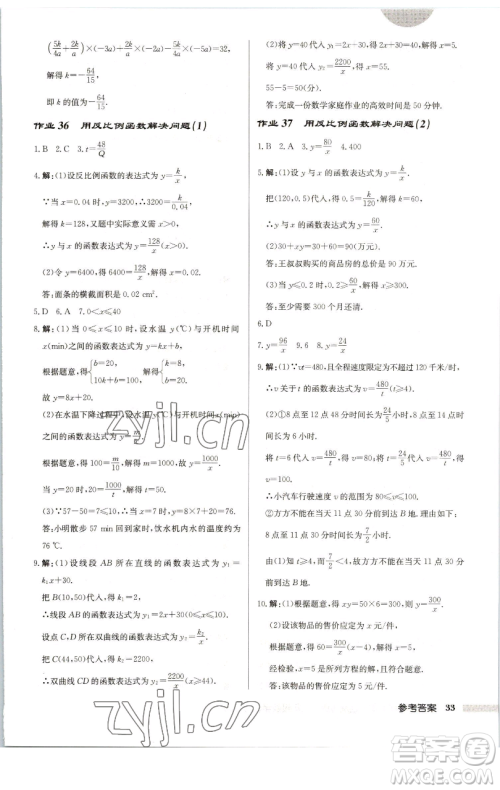 (5k/4a + k/2a)×(-3a)+(-2a)×5k/4a=32,
解得 k=-64/15.
即 k 的值为-64/15.
作业 36 用反比例函数解决问题(1)
1. B 2. C 3. t=48/Q
4. 解:(1)设反比例函数的表达式为 y=k/x.
∵当 x=0.04 时,y=3200,∴3200=k/0.04,
解得 k=128,又题中实际意义可知 x>0.04,
∴y 与 x 的函数表达式为 y=128/x
(2)令 y=6400,得 6400=128/x,解得 x=0.02.
答:面条的横截面积 0.02 cm².
5. A 6. D 7. 0<x≤40
8. 解:(1)当 0≤x≤10 时,设水温 y(℃)与开机时间
x(min)之间的函数表达式为 y=kx+b,
根据题意,得{b=20, 10k+b=100, 解得{k=8, b=20.
故 y=8x+20.
(2)在水温下降过程中,设水温 y(℃)与开机时间 x(min)
之间的函数表达式为 y=m/x,
根据题意,得 100=m/10,解得 m=1000,故 y=1000/x.
当 y=20 时,20=1000/t,解得 t=50.
(3)∵57-50=7≤10,∴当 x=7 时,y=8×7+20=76.
答:小明散步 57 min 回到家时,饮水机内水的温度约为
76 ℃.
9. 解:(1)设线段 AB 所在直线的函数表达式为 y₁=
k₁x+30.
把 B(10,50)代入,得 k₁=2,
∴线段 AB 所在直线的函数表达式为 y₁=2x+30.
设点 C,D 所在双曲线的函数表达式为 y₂=k₂/x,
把 C(44,50)代入,得 k₂=2200,
∴双曲线 CD 的函数表达式为 y₂=2200/x(x≥44).
(2)将 y=40 代入 y₁=2x+30,得 x=5.
将 y=40 代入 y₂=2200/x,得 x=55.
55-5=50(分钟).
答:完成一份数学家庭作业的高效时间是 50 分钟.
作业 37 用反比例函数解决问题(2)
1. B 2. A 3. y=80/x 4. 400
5. 解:(1)设 y 与 x 的函数表达式为 y=k/x,
把(120,0.5)代入,得 0.5=k/120,解得 k=60,
∴y 与 x 的函数表达式为 y=60/x
(2)30+xy=30+60=90(万元).
答:王叔叔购买的商品房的总价是 90 万元.
(3)当 y≤0.2 时,60/x≤0.2,解得 x≥300.
答:王叔叔至少要 300 个月还清.
6. D
7. y=96/x 9. 6 8. y=24/x
9. 解:(1)∵vt=480,且全程速度限定为不超过 120 千米/时,
∴v 关于 t 的函数表达式为 v=480/t(t≥4).
(2)①8 点至 12 点 48 分时间长为 24/5 小时,8 点至 14
点时间长为 6 小时,
将 t=6 代入 v=480/t,得 v=80,将 t=24/5 代入 v=480/t,
得 v=100.
∴小汽车行驶速度 v 的范围为 80≤v≤100.
②方方不能在当天 11 点 30 分前到达 B 地.理由如下:
8 点至 11 点 30 分时间长为 7/2 小时,
由(1)知 t≥4,而 7/2<4,故方方不能在当天 11 点 30 分
前到达 B 地.
10. 解:(1)根据题意,得 xy=50×6=300,则 y=300/x.
(2)设该物品的售价应定为 x 元/件,
根据题意,得 60=300/x(x-4),解得 x=5,
经检验,x=5 是所列方程的解,且符合题意.
答:该物品的售价应定为 5 元/件.
参考答案 33
zyjl.cn
zyjl.cn
答案圈
MXQE.COM